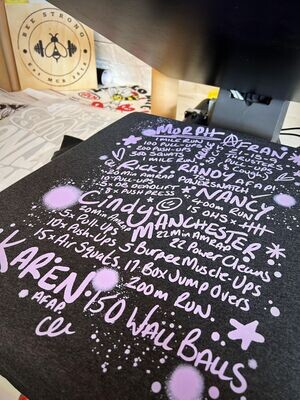 BEE STRONG
MORPH
FRAN
1 MILE RUN
100 PULL-UPS
200 PUSH-UPS
300 SQUATS
1 MILE RUN
21-15-9
THRUSTERS
PULL-UPS
RICKY
RANDY
AFAP!
20 MIN AMRAP
POWER SNATCH
10 PULL-UPS
5 x DB DEADLIFT
8 x PUSH PRESS
NANCY
400m RUN
15 OHS
Cindy
20 min AMRAP
5x Pull-Ups
10x Push-Ups
15x Air Squats
MANCHESTER
22 min AMRAP
22 Power Cleans
5 Burpee Muscle-Ups
17 Box Jump Overs
200m Run
KAREN
AFAP.
150 Wall Balls